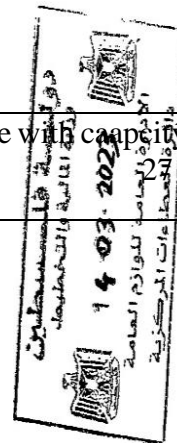 e with caapcity
27
دولة فلسطين
وزارة المالية والتخطيط
14-03-2023
الإدارة العامة للوازم العامة
والعطاءات المركزية